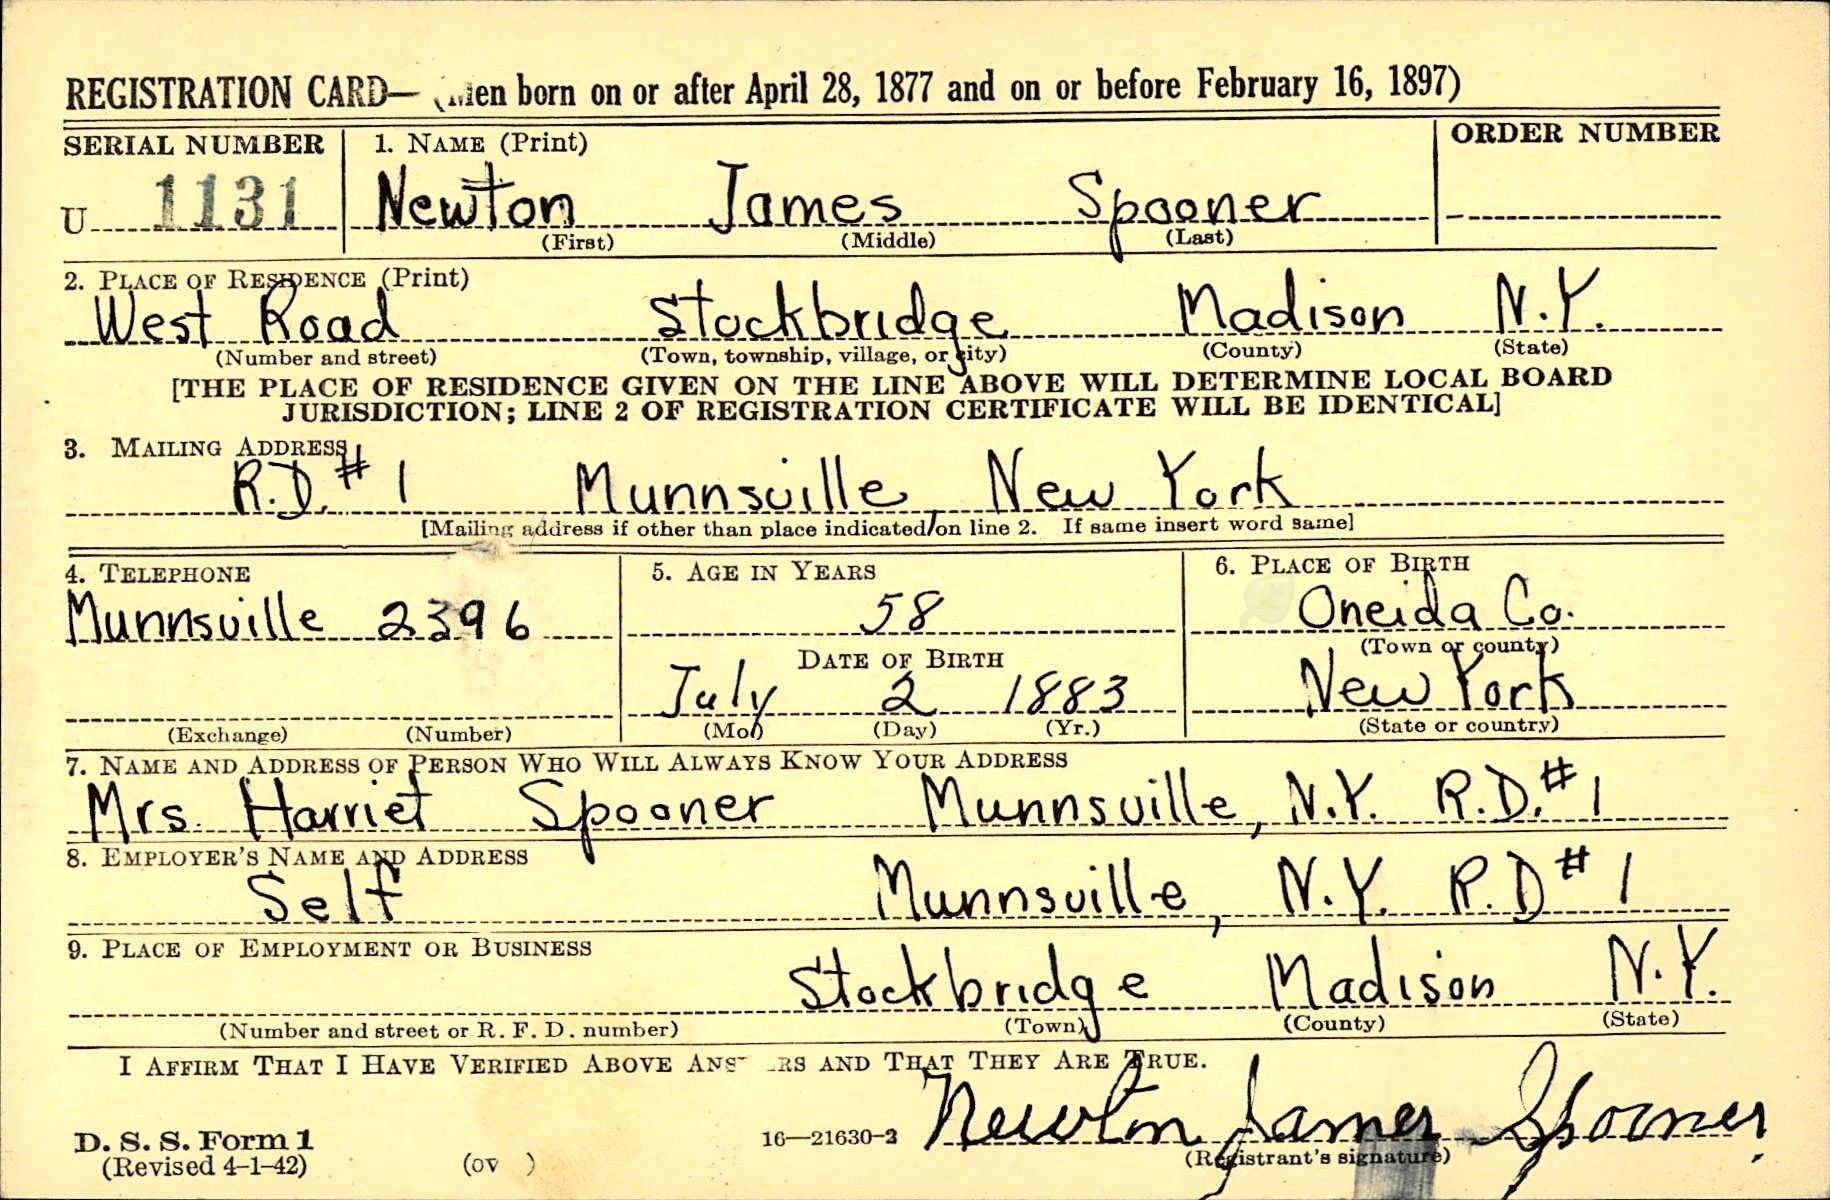 REGISTRATION CARD— (Men born on or after April 28, 1877 and on or before February 16, 1897)
SERIAL NUMBER 1. NAME (Print) ORDER NUMBER
U 1131 Newton James Spooner
(First) (Middle) (Last)
2. PLACE OF RESIDENCE (Print)
West Road Stockbridge Madison N.Y.
(Number and street) (Town, township, village, or city) (County) (State)
[THE PLACE OF RESIDENCE GIVEN ON THE LINE ABOVE WILL DETERMINE LOCAL BOARD
JURISDICTION; LINE 2 OF REGISTRATION CERTIFICATE WILL BE IDENTICAL]
3. MAILING ADDRESS
R.D. # 1 Munnsville, New York
[Mailing address if other than place indicated on line 2. If same insert word same]
4. TELEPHONE 5. AGE IN YEARS 6. PLACE OF BIRTH
Munnsville 2396 58 Oneida Co.
(Town or county)
DATE OF BIRTH
July 2 1883 New York
(Exchange) (Number) (Mo.) (Day) (Yr.) (State or country)
7. NAME AND ADDRESS OF PERSON WHO WILL ALWAYS KNOW YOUR ADDRESS
Mrs. Harriet Spooner Munnsville, N.Y. R.D. # 1
8. EMPLOYER'S NAME AND ADDRESS
Self Munnsville, N.Y. R.D # 1
9. PLACE OF EMPLOYMENT OR BUSINESS
Stockbridge Madison N.Y.
(Number and street or R. F. D. number) (Town) (County) (State)
I AFFIRM THAT I HAVE VERIFIED ABOVE ANSWERS AND THAT THEY ARE TRUE.
Newton James Spooner
D. S. S. Form 1 16—21630-2 (Registrant's signature)
(Revised 4-1-42) (ov )